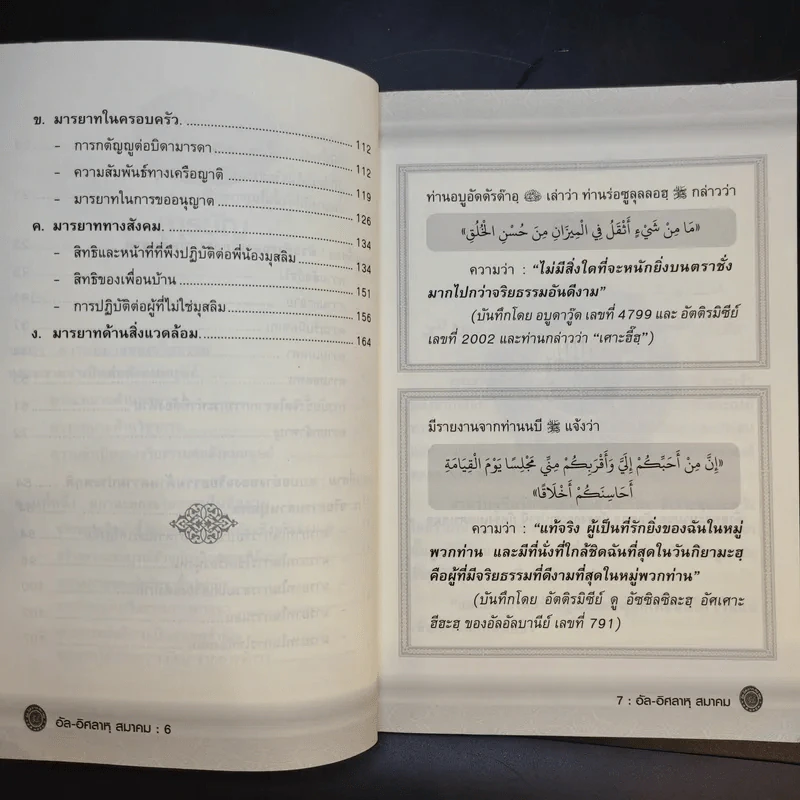 ข. มารยาทในครอบครัว. 112
- การกตัญญูต่อบิดามารดา 112
- ความสัมพันธ์ทางเครือญาติ 119
- มารยาทในการขออนุญาต 126
ค. มารยาททางสังคม. 134
- สิทธิและหน้าที่ที่พึงปฏิบัติต่อพี่น้องมุสลิม 134
- สิทธิของเพื่อนบ้าน 151
- การปฏิบัติต่อผู้ที่ไม่ใช่มุสลิม 156
ง. มารยาทด้านสิ่งแวดล้อม. 164
อัล-อิศลาหฺ สมาคม : 6
ท่านอบูอัดดัรด๊าอฺ เล่าว่า ท่านร่อซูลุลลอฮฺ ﷺ กล่าวว่า
«مَا مِنْ شَيْءٍ أَثْقَلُ فِي الْمِيزَانِ مِنْ حُسْنِ الْخُلُقِ»
ความว่า : “ไม่มีสิ่งใดที่จะหนักยิ่งบนตราชั่ง
มากไปกว่าจริยธรรมอันดีงาม”
(บันทึกโดย อบูดาวู๊ด เลขที่ 4799 และ อัตติรมิซีย์
เลขที่ 2002 และท่านกล่าวว่า “เศาะฮี๊ฮฺ”)
มีรายงานจากท่านนบี ﷺ แจ้งว่า
«إِنَّ مِنْ أَحَبِّكُمْ إِلَيَّ وَأَقْرَبِكُمْ مِنِّي مَجْلِسًا يَوْمَ الْقِيَامَةِ
أَحَاسِنَكُمْ أَخْلَاقًا»
ความว่า : “แท้จริง ผู้เป็นที่รักยิ่งของฉันในหมู่
พวกท่าน และมีที่นั่งที่ใกล้ชิดฉันที่สุดในวันกิยามะฮฺ
คือผู้ที่มีจริยธรรมที่ดีงามที่สุดในหมู่พวกท่าน”
(บันทึกโดย อัตติรมิซีย์ ดู อัซซิลซิละฮฺ อัศเศาะ
ฮีฮะฮฺ ของอัลอัลบานีย์ เลขที่ 791)
7 : อัล-อิศลาหฺ สมาคม